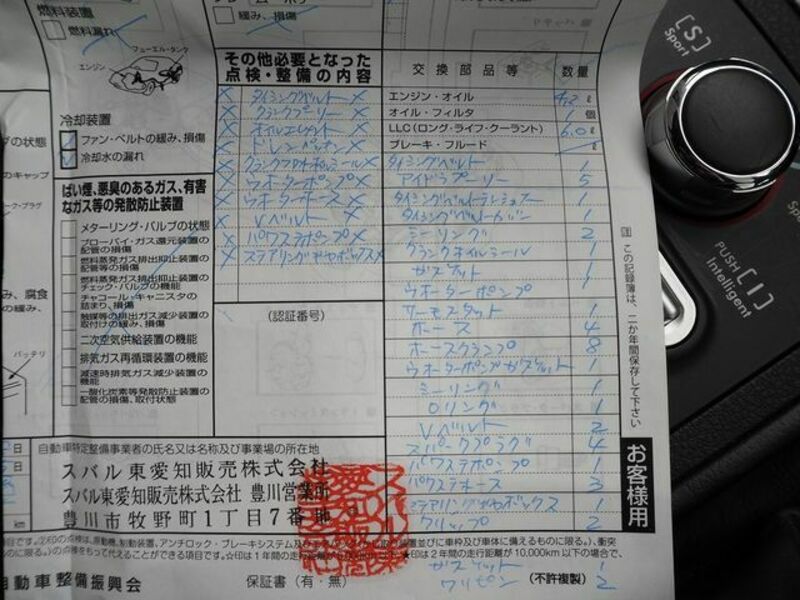 燃料装置
燃料漏れ
緩み、損傷
フューエル・タンク
エンジン
冷却装置
ファン・ベルトの緩み、損傷
冷却水の漏れ
ばい煙、悪臭のあるガス、有害
なガス等の発散防止装置
メターリング・バルブの状態
ブローバイ・ガス還元装置の
配管の損傷
燃料蒸発ガス排出抑止装置の
配管等の損傷
燃料蒸発ガス排出抑止装置の
チェック・バルブの機能
チャコール・キャニスタの
詰まり、損傷
触媒等の排出ガス減少装置の
取付けの緩み、損傷
二次空気供給装置の機能
排気ガス再循環装置の機能
減速時排気ガス減少装置の
機能
一酸化炭素等発散防止装置の
配管の損傷、取付状態
その他必要となった
点検・整備の内容
× タイミングベルト ×
× クランクプーリー ×
× オイルエレメント ×
× ドレンパッキン ×
× ウオーターポンプ ×
× ウオーターホース ×
Vベルト ×
× パワステポンプ ×
× ステアリングギヤボックス ×
(認証番号)
交換部品等 数量
エンジン・オイル 4.2 ℓ
オイル・フィルタ 1 個
LLC(ロング・ライフ・クーラント) 6.0 ℓ
ブレーキ・フルード ℓ
タイミングベルト 1
アイドラプーリー 5
タイミングベルトテンショナー 1
タイミングベルトカバー 1
シーリング 2
クランクオイルシール 1
ガスケット 1
ウオーターポンプ 1
サーモスタット 1
ホース 4
ホースクランプ 8
ウオーターポンプガスケット 1
シーリング 1
Oリング 1
Vベルト 2
スパークプラグ 4
パワステポンプ 1
パワステホース 3
ステアリングギヤボックス 1
クリップ 2
ガスケット 1
ワリピン 2
(不許複製)
注 この記録簿は、二か年間保存して下さい
お客様用
自動車特定整備事業者の氏名又は名称及び事業場の所在地
スバル東愛知販売株式会社
スバル東愛知販売株式会社 豊川営業所
豊川市牧野町1丁目7番地
自動車整備振興会
保証書(有・無)
の状態
のキャップ
ーク・プラグ
み、腐食
の緩み、
バッテリ
日
日
km
[S]
Sport
PUSH [I]
Intelligent